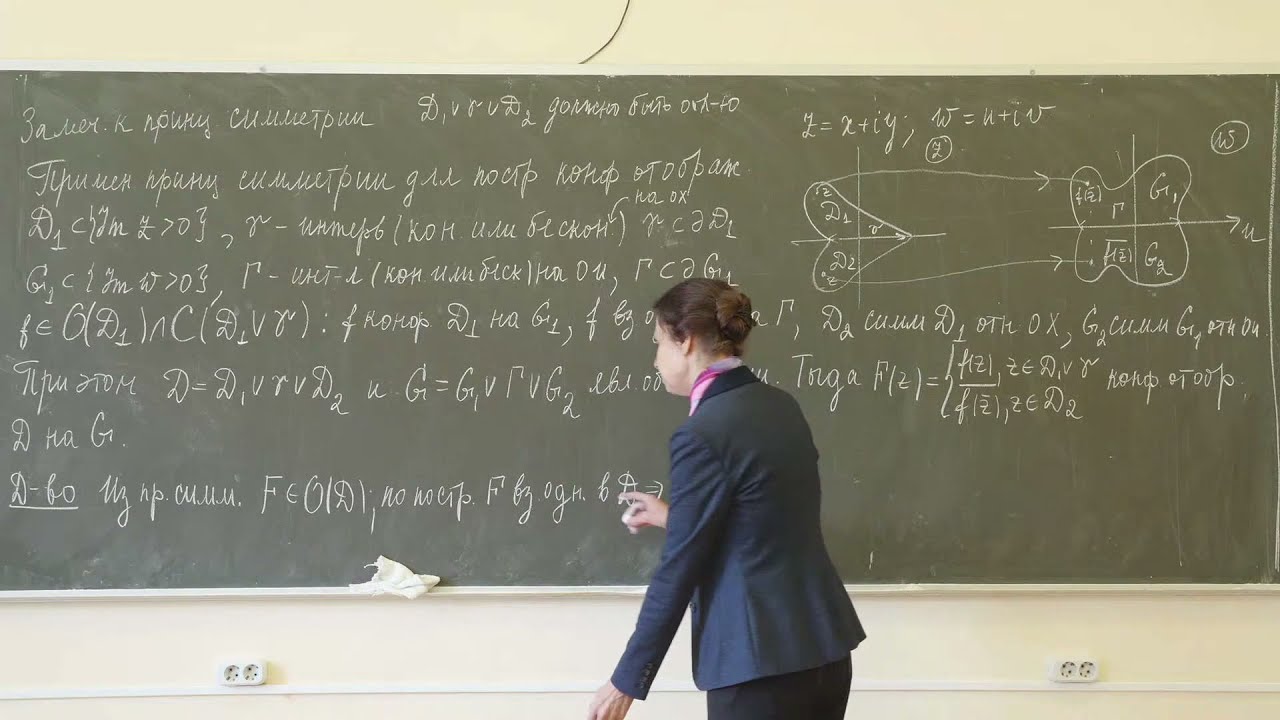 Замеч. к принц симметрии D₁∪γ∪D₂ должно быть обл-ю
z=x+iy; w=u+iv
Примен принц симметрии для постр конф отображ.
на ox
D₁⊂{Im z>0}, γ - интерв (кон. или бескон) γ⊂∂D₁
G₁⊂{Im w>0}, Γ - инт-л (кон. или беск) на Ou, Γ⊂∂G₁
f∈O(D₁)∩C(D₁∪γ): f конф. D₁ на G₁, f вз о Γ, D₂ симм D₁ отн OX, G₂ симм G₁ отн Ou
При этом D=D₁∪γ∪D₂ и G=G₁∪Γ∪G₂ явл. об Тогда F(z)={f(z), z∈D₁∪γ конф. отобр.
f(z̄), z∈D₂
D на G.
Д-во Из пр. симм. F∈O(D); по постр. F вз. одн. в D ⇒
z
w
z̄
D₁
γ
D₂
z
f(z̄)
Γ
G₁
u
f(z̄)
G₂